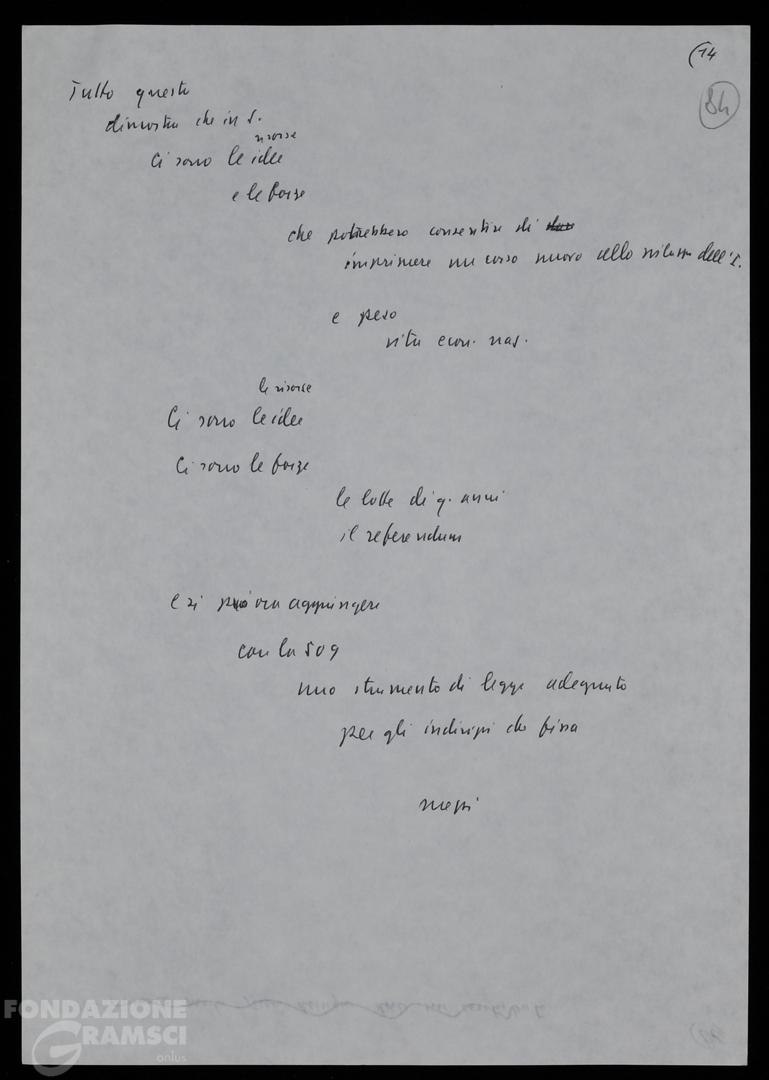 (14
84
Tutto questo
dimostra che in S.
risorse
ci sono le idee
e le forze
che potrebbero consentire di
imprimere un corso nuovo allo sviluppo dell'I.
e peso
vita econ. naz.
le risorse
Ci sono le idee
Ci sono le forze
le lotte di q. anni
il referendum
e si può ora aggiungere
con la 509
uno strumento di legge adeguato
per gli indirizzi che fissa
mezzi
FONDAZIONE
GRAMSCI
onlus